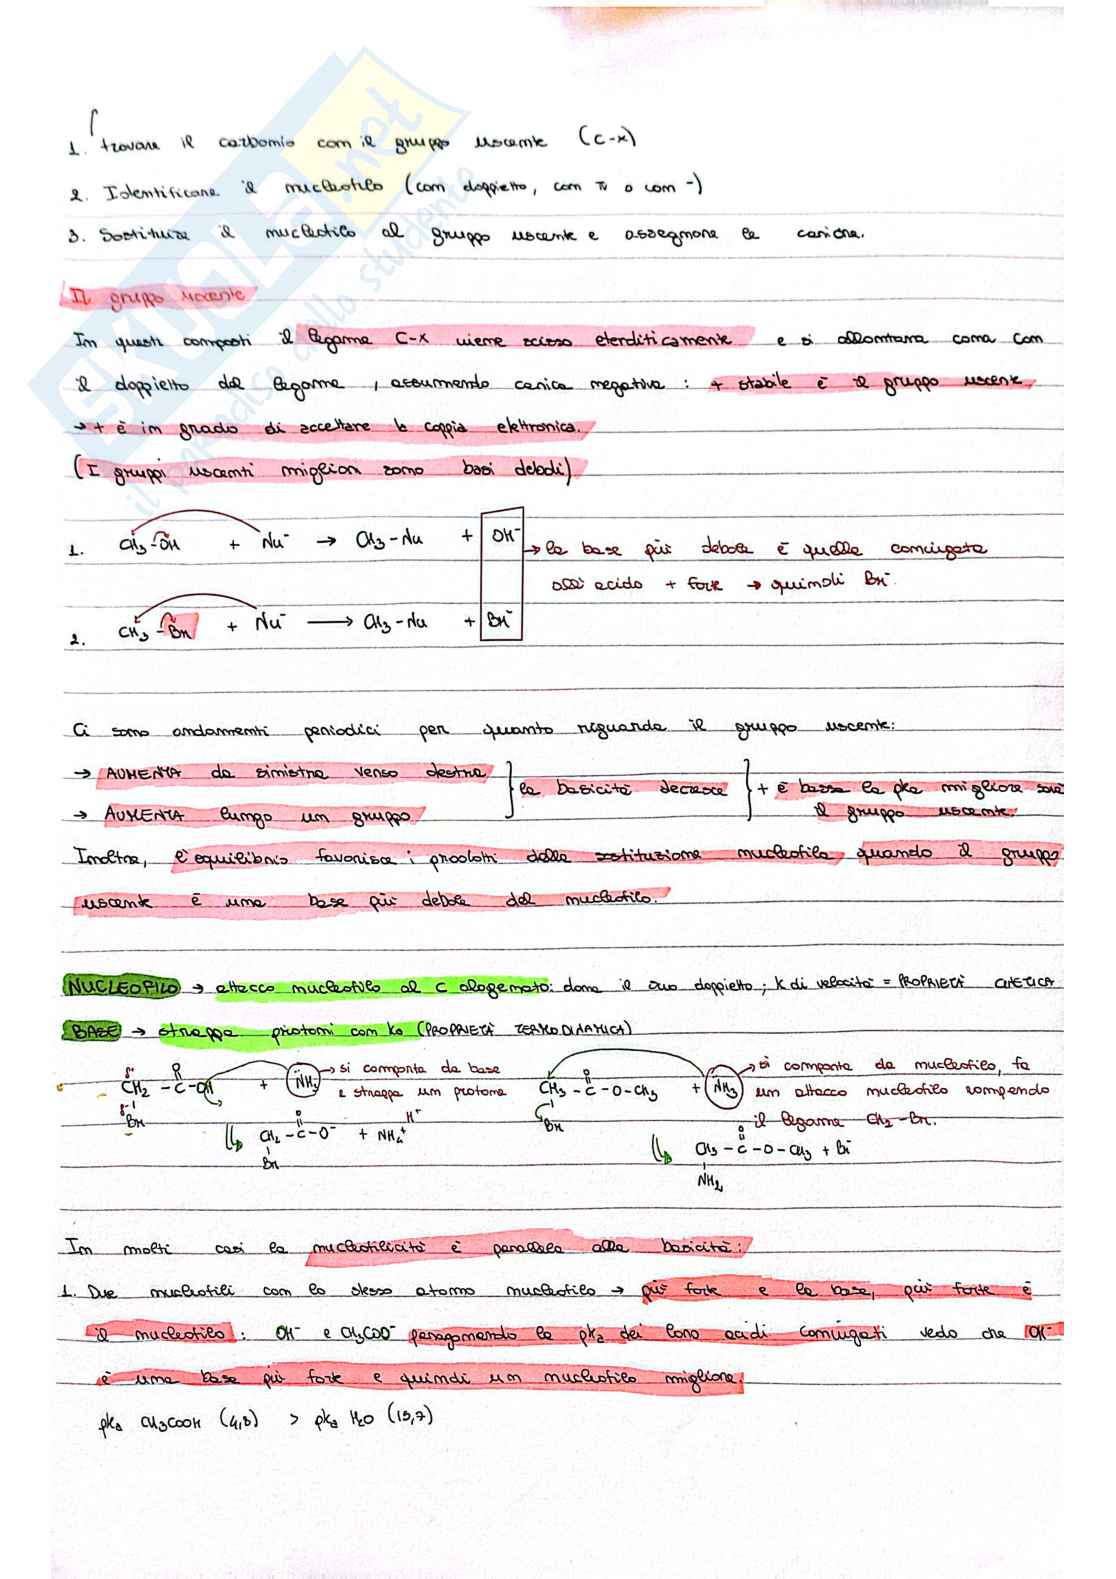 1. trovare il carbonio con il gruppo uscente (C-X)
2. Identificare il nucleofilo (con doppietto, con π o con -)
3. Sostituire il nucleofilo al gruppo uscente e assegnare le cariche.
Il gruppo uscente
In questi composti il legame C-X viene scisso eteroliticamente e si allontana come con
il doppietto del legame, assumendo carica negativa: + stabile è il gruppo uscente
→ + è in grado di accettare la coppia elettronica.
(I gruppi uscenti migliori sono basi deboli)
1. CH3-OH + Nu- → CH3-Nu + OH-
→ la base più debole è quella coniugata
all' acido + forte → quindi Br-.
2. CH3-Br + Nu- → CH3-Nu + Br-
Ci sono andamenti periodici per quanto riguarda il gruppo uscente:
→ AUMENTA da sinistra verso destra
→ AUMENTA lungo un gruppo
la basicità decresce
+ è bassa la pka migliore sarà
il gruppo uscente.
Inoltre, l'equilibrio favorisce i prodotti della sostituzione nucleofila quando il gruppo
uscente è una base più debole del nucleofilo.
NUCLEOFILO → attacco nucleofilo al C alogenato: dona il suo doppietto; K di velocità = PROPRIETÀ CINETICA
BASE → strappa protoni con ka (PROPRIETÀ TERMODINAMICA)
δ+ CH2 - C - OH + NH3 → si comporta da base
O
e strappa un protone
δ- Br
CH2 - C - O- + NH4+
O
H+
Br
CH3 - C - O - CH3 + NH3 → si comporta da nucleofilo, fa
O
un attacco nucleofilo rompendo
Br
il legame CH2-Br.
CH3 - C - O - CH3 + Br-
O
NH2
In molti casi la nucleofilicità è parallela alla basicità:
1. Due nucleofili con lo stesso atomo nucleofilo → più forte e la base, più forte è
il nucleofilo: OH- e CH3COO- paragonando le pka dei loro acidi coniugati vedo che OH-
è una base più forte e quindi un nucleofilo migliore.
pka CH3COOH (4,8) > pka H2O (15,7)
SKUOLA.net
il paradiso dello studente